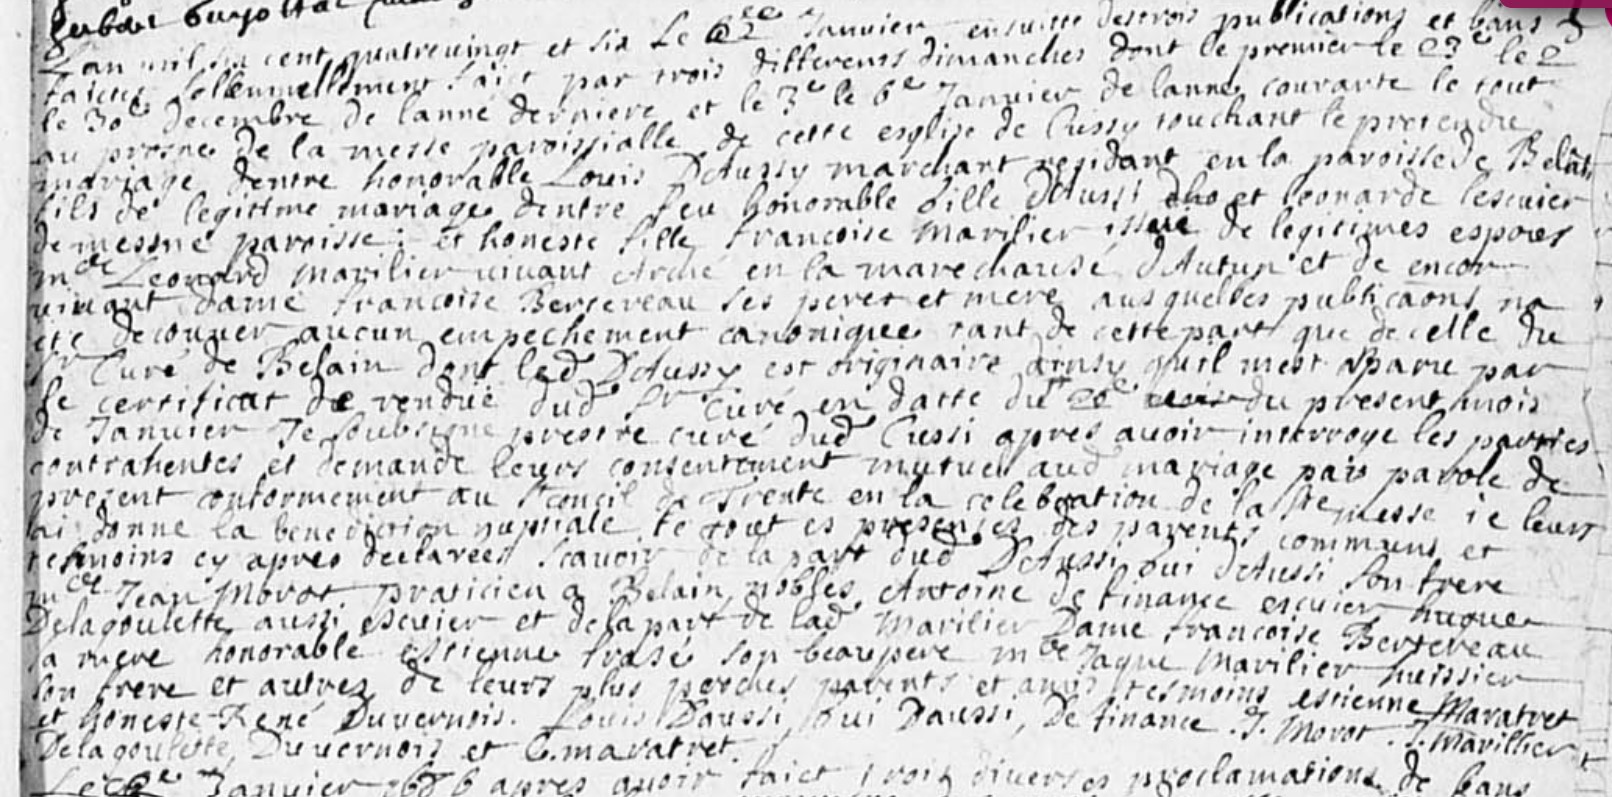 Lan mil six cent quatre uingt et six Le 22e Januier ensuitte destrois publications et bans
faictes sollennellement faict par trois differents dimanches dont le premier le 23e le 2
le 30e decembre de lanné derniere et le 3e le 6e Januier de lanné courante le tout
au prosne de la messe paroissialle de cette esglise de Cussy touchant le pretendu
mariage dentre honorable Louis DAussy marchant residant en la paroisse de Belai
fils de legitime mariage dentre feu honorable Gille DAussi et leonarde lescuier
de mesme paroisse; et honeste fille francoise Marilier issue de legitimes espoux
mtre Leonard Marilier uiuant Arché en la marechausé dAutun et de encor
uiuant dame francoise Bertereau ses peres et mere ausquelles publicaons na
eté decouuer aucun empechement canonique tant de cette part que de celle du
sr Curé de Belain dont led DAussy est originaire ainsy quil mest aparu par
le certificat de rendue dud sr Curé en datte du 20e du present mois
de Januier Je soubsigné prestre curé dud Cussi apres auoir interrogé les parties
contrahentes et demandé leurs consentement mutuel aud mariage par parole de
present conformement au st Concil de Trente en la celebration de la ste messe ie leurs
ai donné la benediction nuptiale le tout es presences des parents communs et
tesmoins cy apres declarees scauoir de la part dud DAussi, Gui dAussi son frere
mtre Jean Morot praticien a Belain, nobles Antoine De finance escuier hugue
Delagoulette aussi escuier et de la part de lad Marilier Dame francoise Bertereau
sa mere honorable estienne frasé son beaupere mtre Jaque Marilier huissier
son frere et autres de leurs plus proches parents et amis tesmoins estienne Maratret
et honeste René Duuernois. Louis Daussi, Gui Daussi, De finance. J. Morot. J. Marillier
Delagoulette, Duuernois et E. maratret.
Januier 1686 apres auoir faict trois diuerses proclamations de bans